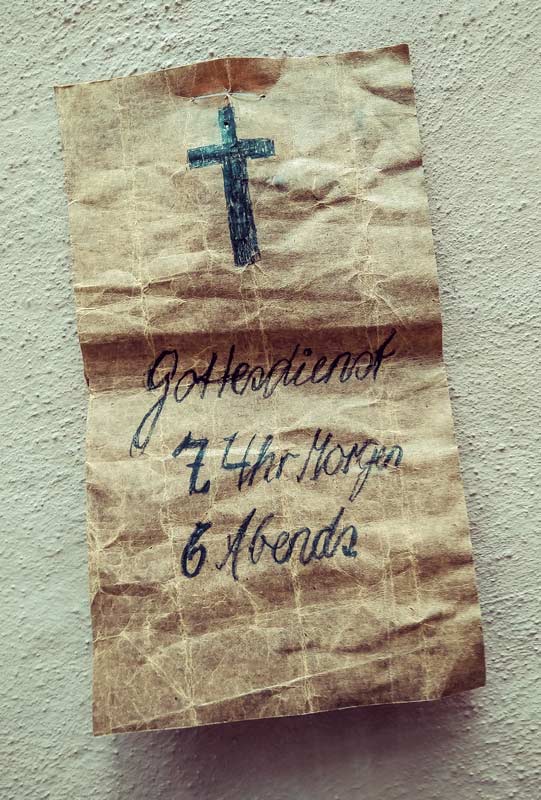 Gottesdienst
7 Uhr Morgen
6 Abends